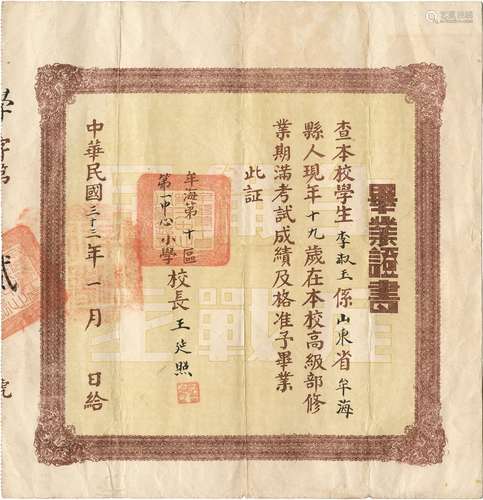 畢業證書
查本校學生李淑玉係山東省牟海
縣人現年十九歲在本校高級部修
業期滿考試成績及格准予畢業
此証
牟海第十區
第一中心小學
校長王延照
中華民國三十三年一月 日給
學字第 貳 號